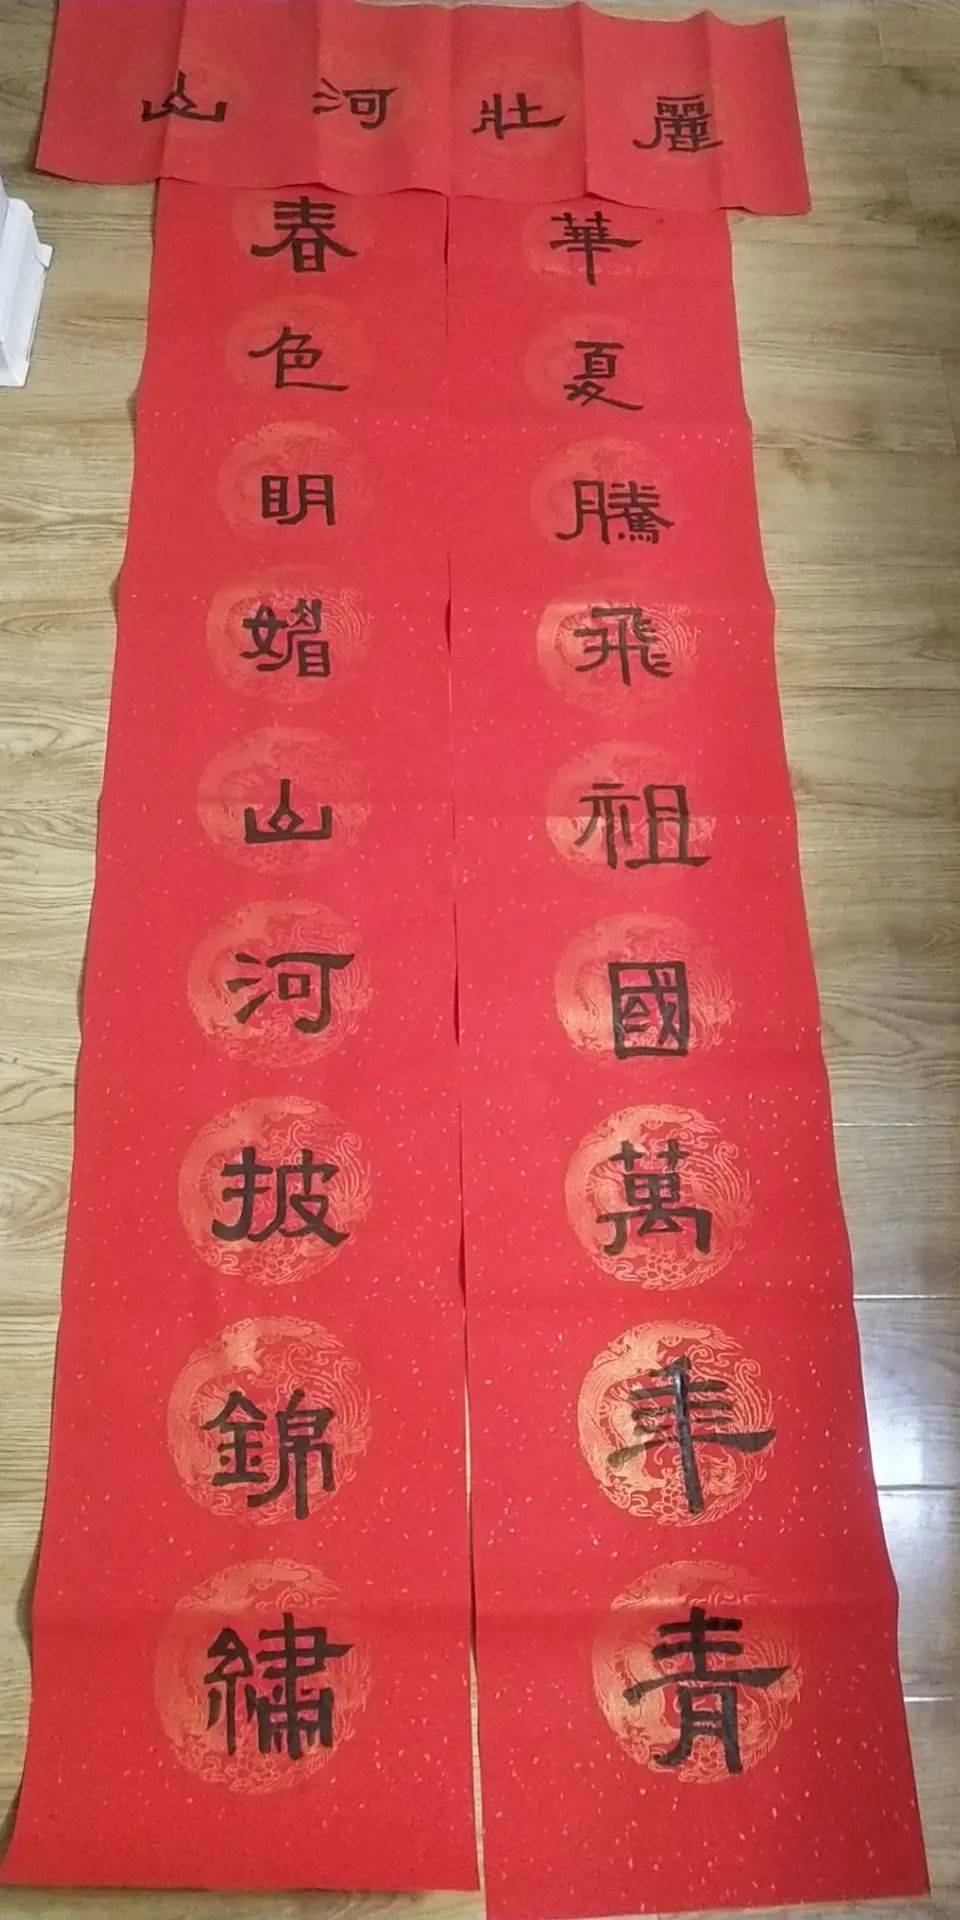 山河壯麗
春色明媚山河披錦繡
華夏騰飛祖國萬年青